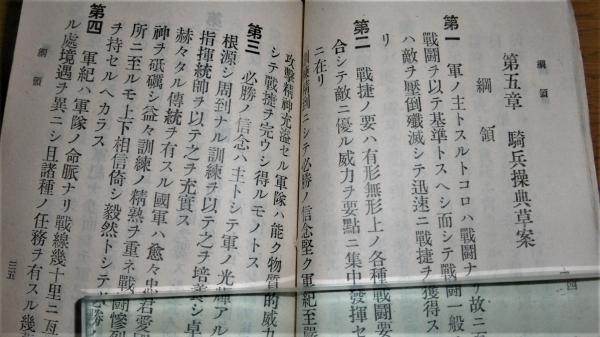 綱領
第五章 騎兵操典草案
綱領
第一 軍ノ主トスルトコロハ戰鬪ナリ故ニ百
戰鬪ヲ以テ基準トスヘシ而シテ戰鬪一般
ハ敵ヲ壓倒殲滅シテ迅速ニ戰捷ヲ獲得ス
リ
第二 戰捷ノ要ハ有形無形上ノ各種戰鬪要
合シテ敵ニ優ル威力ヲ要點ニ集中發揮セ
ニ在リ
訓練精到ニシテ必勝ノ信念堅ク軍紀至嚴
攻擊精神充溢セル軍隊ハ能ク物質的威力
シテ戰捷ヲ完ウシ得ルモノトス
第三 必勝ノ信念ハ主トシテ軍ノ光輝アル
根源シ周到ナル訓練ヲ以テ之ヲ培養シ卓
指揮統帥ヲ以テ之ヲ充實ス
赫々タル傳統ヲ有スル國軍ハ愈々忠君愛國
神ヲ砥礪シ益々訓練ノ精熟ヲ重ネ戰鬪慘烈
所ニ至ルモ上下相信倚シ毅然トシテ必勝ノ
ヲ持セルヘカラス
第四 軍紀ハ軍隊ノ命脈ナリ戰線幾十里ニ亙
ル處境遇ヲ異ニシ且諸種ノ任務ヲ有スル幾
綱領
三五